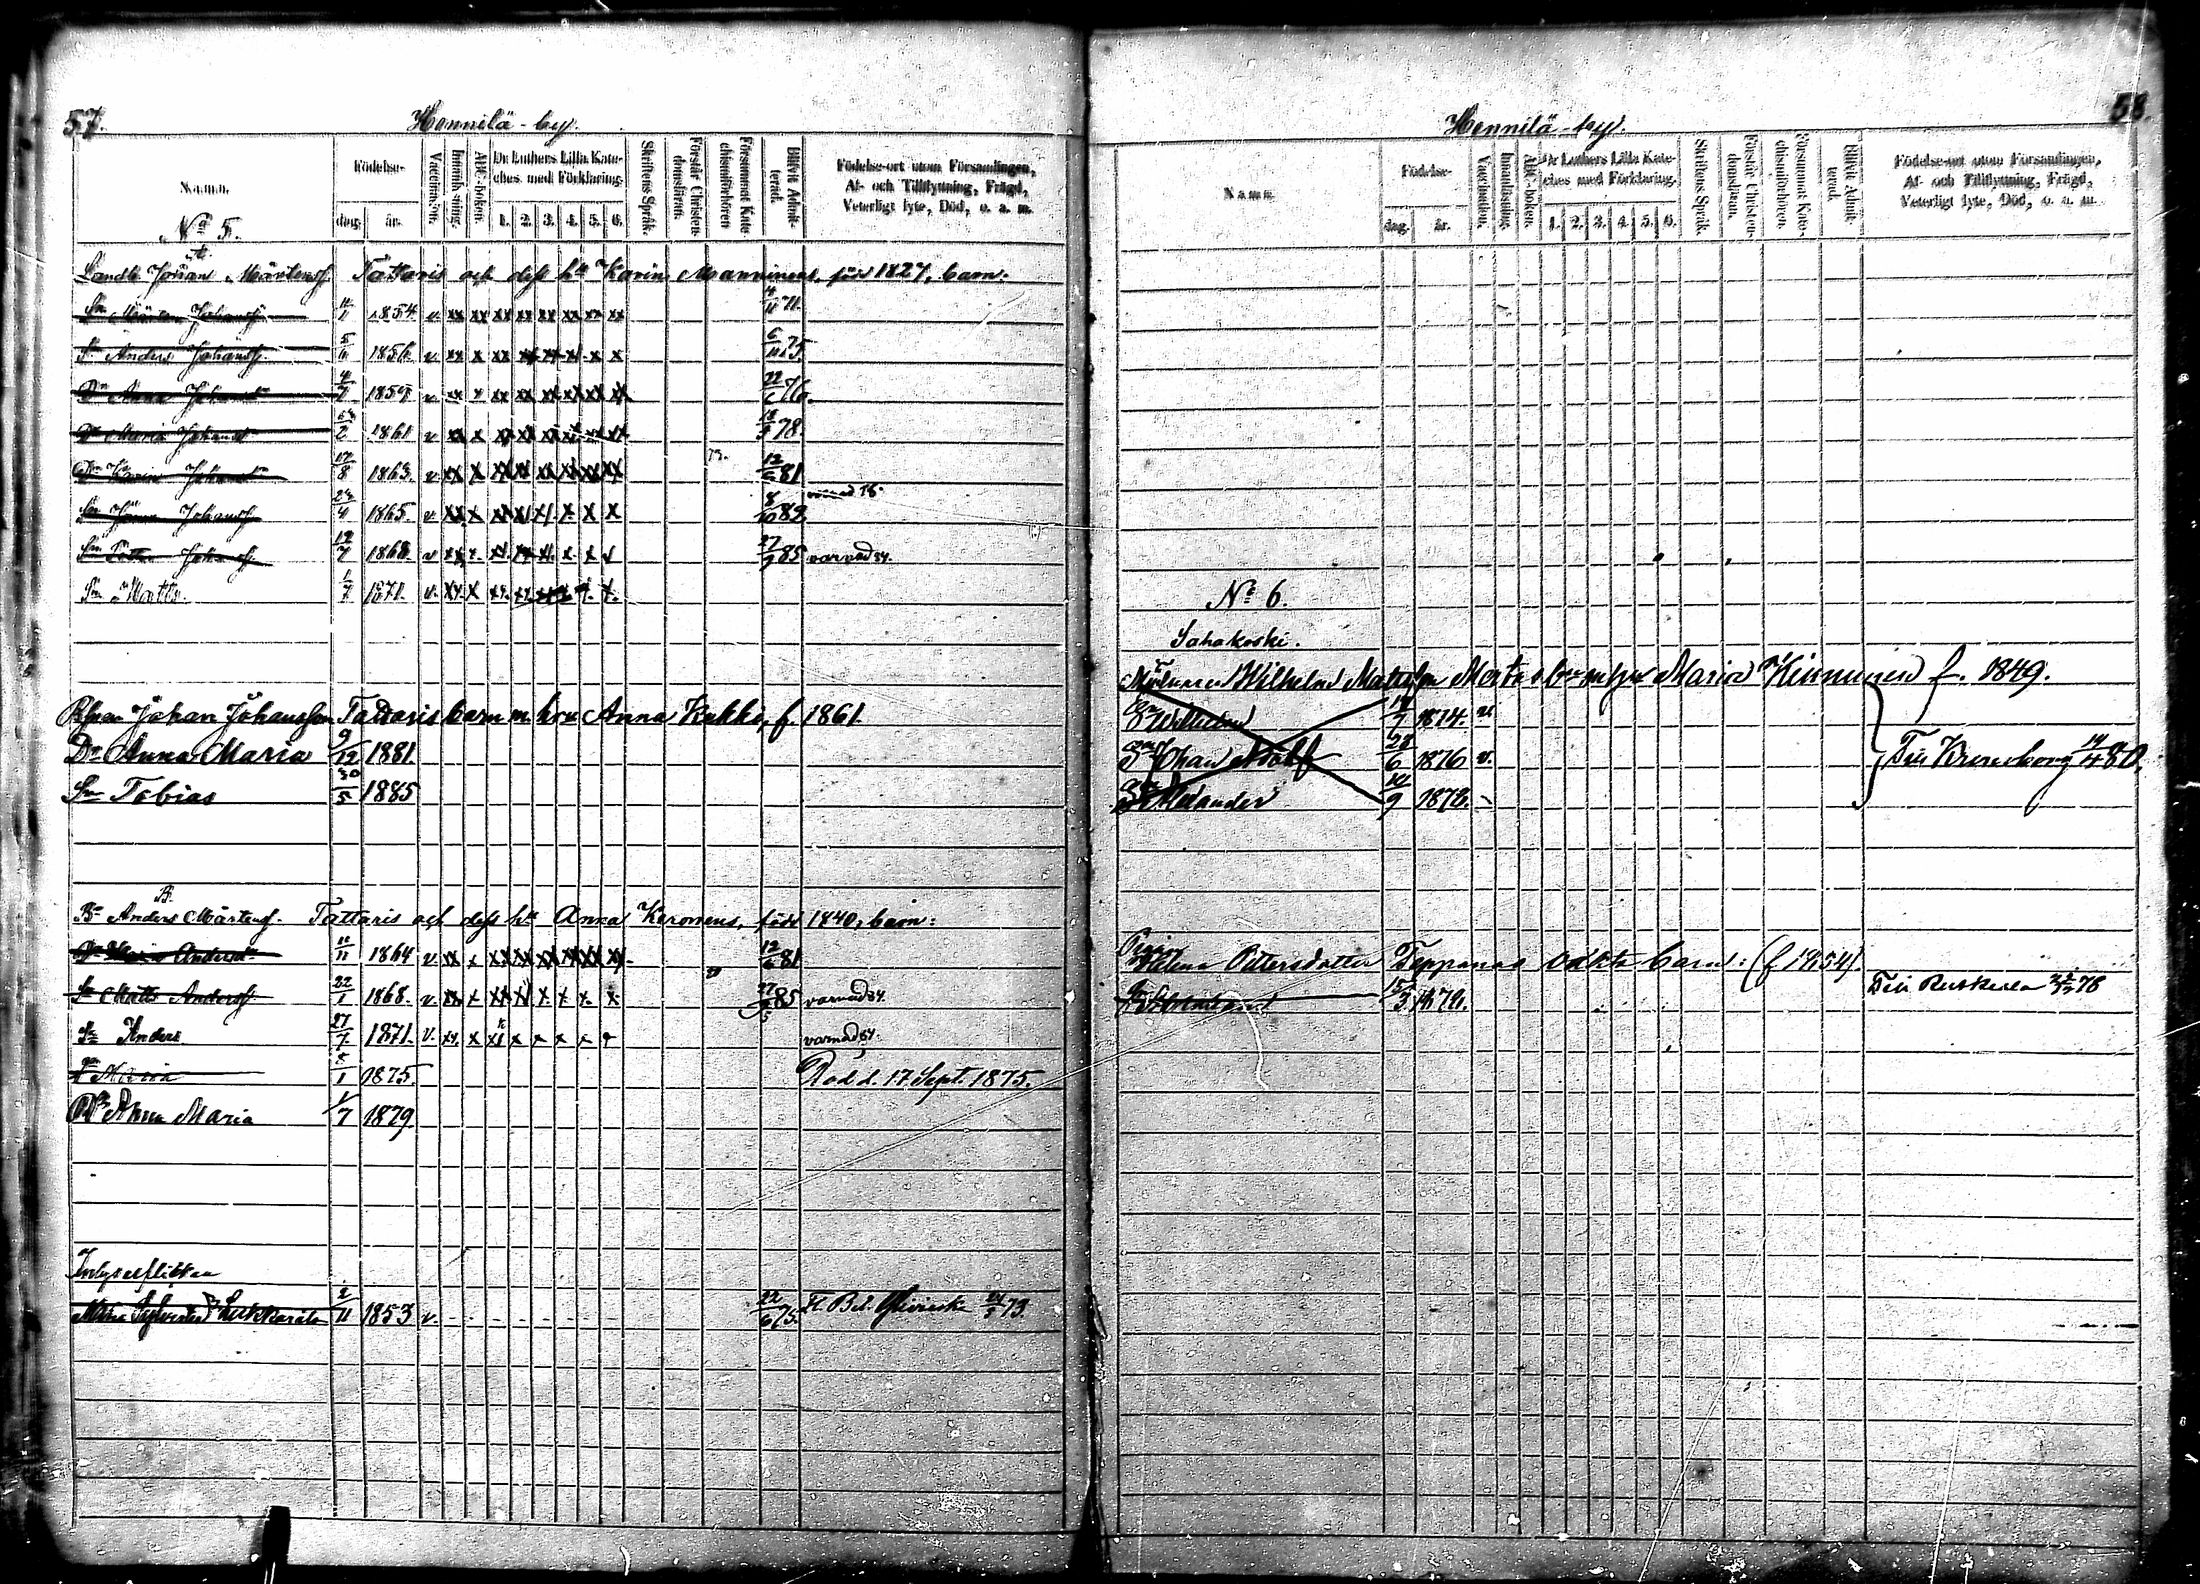 57.
Hennilä-by.
Namn.
Födelse-
dag.
år.
Vaccination.
Innanläsning.
ABC-boken.
Dr Luthers Lilla Kate-
ches. med Förklaring.
1. 2. 3. 4. 5. 6.
Skriftens Språk.
Förstår Christen-
domsläran.
Försummat Kate-
chismiförhören
Blifvit Admit-
terad.
Födelse-ort utom Församlingen,
Af- och Tillflyttning, Frägd,
Veterligt lyte, Död, o. a. m.
No 5.
A.
Landb. Johan Mårtenss. Tattaris och dess hu Karin Manninens, född 1827, barn:
Sn Mårten Johanss. 11/1 1854. v. xx xx xx xx xx xx xx xx 4/11 71.
Sn Anders Johanss. 5/11 1856. v. xx x xx xx xx x x x 6/11 75.
Dr Anna Johansdr 4/7 1859 v. xx x xx xx xx xx xx xx 22/6 76.
Dr Maria Johansdr 1861 v xx x xx xx xx x xx xx 78.
Dr Karin Johansdr 17/8 1863. v. xx x xx xx xx xx xx xx 73. 12/6 81
Sn Jöran Johanss. 24/4 1865. v. xx x xx xx x x x x 8/10 82 varnad
Sn Petter Johanss. 12/7 1868. v xx x xx xx x x x x 27/9 85 varnad 84.
Sn Matts. 1/7 1871. v. xx x xx xx xx x x x
Bson Johan Johansson Tattaris barn m. hru Anna Kekki, f. 1861.
Dr Anna Maria 9/12 1881.
Sn Tobias 30/5 1885
B.
Bn Anders Mårtenss. Tattaris och dess hu Anna Keronens, född 1840, barn:
Dr Maria Andersdr 11/11 1864 v. xx x xx xx xx xx xx xx 12/6 81
Sn Matts Anderss. 22/1 1868. v. xx x xx xx x x x x 27/9 85 varnad 84.
Sn Anders 27/7 1871. v. xx. x xx x x x x varnad 84.
Dr Maria 5/1 1875 Död d. 17 Sept. 1875.
Dr Anna Maria 1/7 1879
Inhysesflickan
2/11 1853 v. 22/6 75.
58.
Hennilä-by.
Namn.
Födelse-
dag.
år.
Vaccination.
Innanläsning.
ABC-boken.
Dr Luthers Lilla Kate-
ches med Förklaring.
1. 2. 3. 4. 5. 6.
Skriftens Språk.
Förstår Christen-
domsläran.
Försummat Kate-
chismiförhören.
Blifvit Admit-
terad.
Födelse-ort utom Församlingen,
Af- och Tillflyttning, Frägd,
Veterligt lyte, Död, o. a. m.
No 6.
Sahakoski.
Wilhelm Mattsson Maria Kinnunen f. 1849.
Sn Wilhelm 1874.
Sn Johan Adolf 28/6 1876 v.
Sn Alexander 14/9 1878.
Till Kronoborg 14/4 80.
Pigan
Helena Pettersdotter Teppanas oäkta barn: (f 1854).
15/3 1872. Till Ruskeala 78